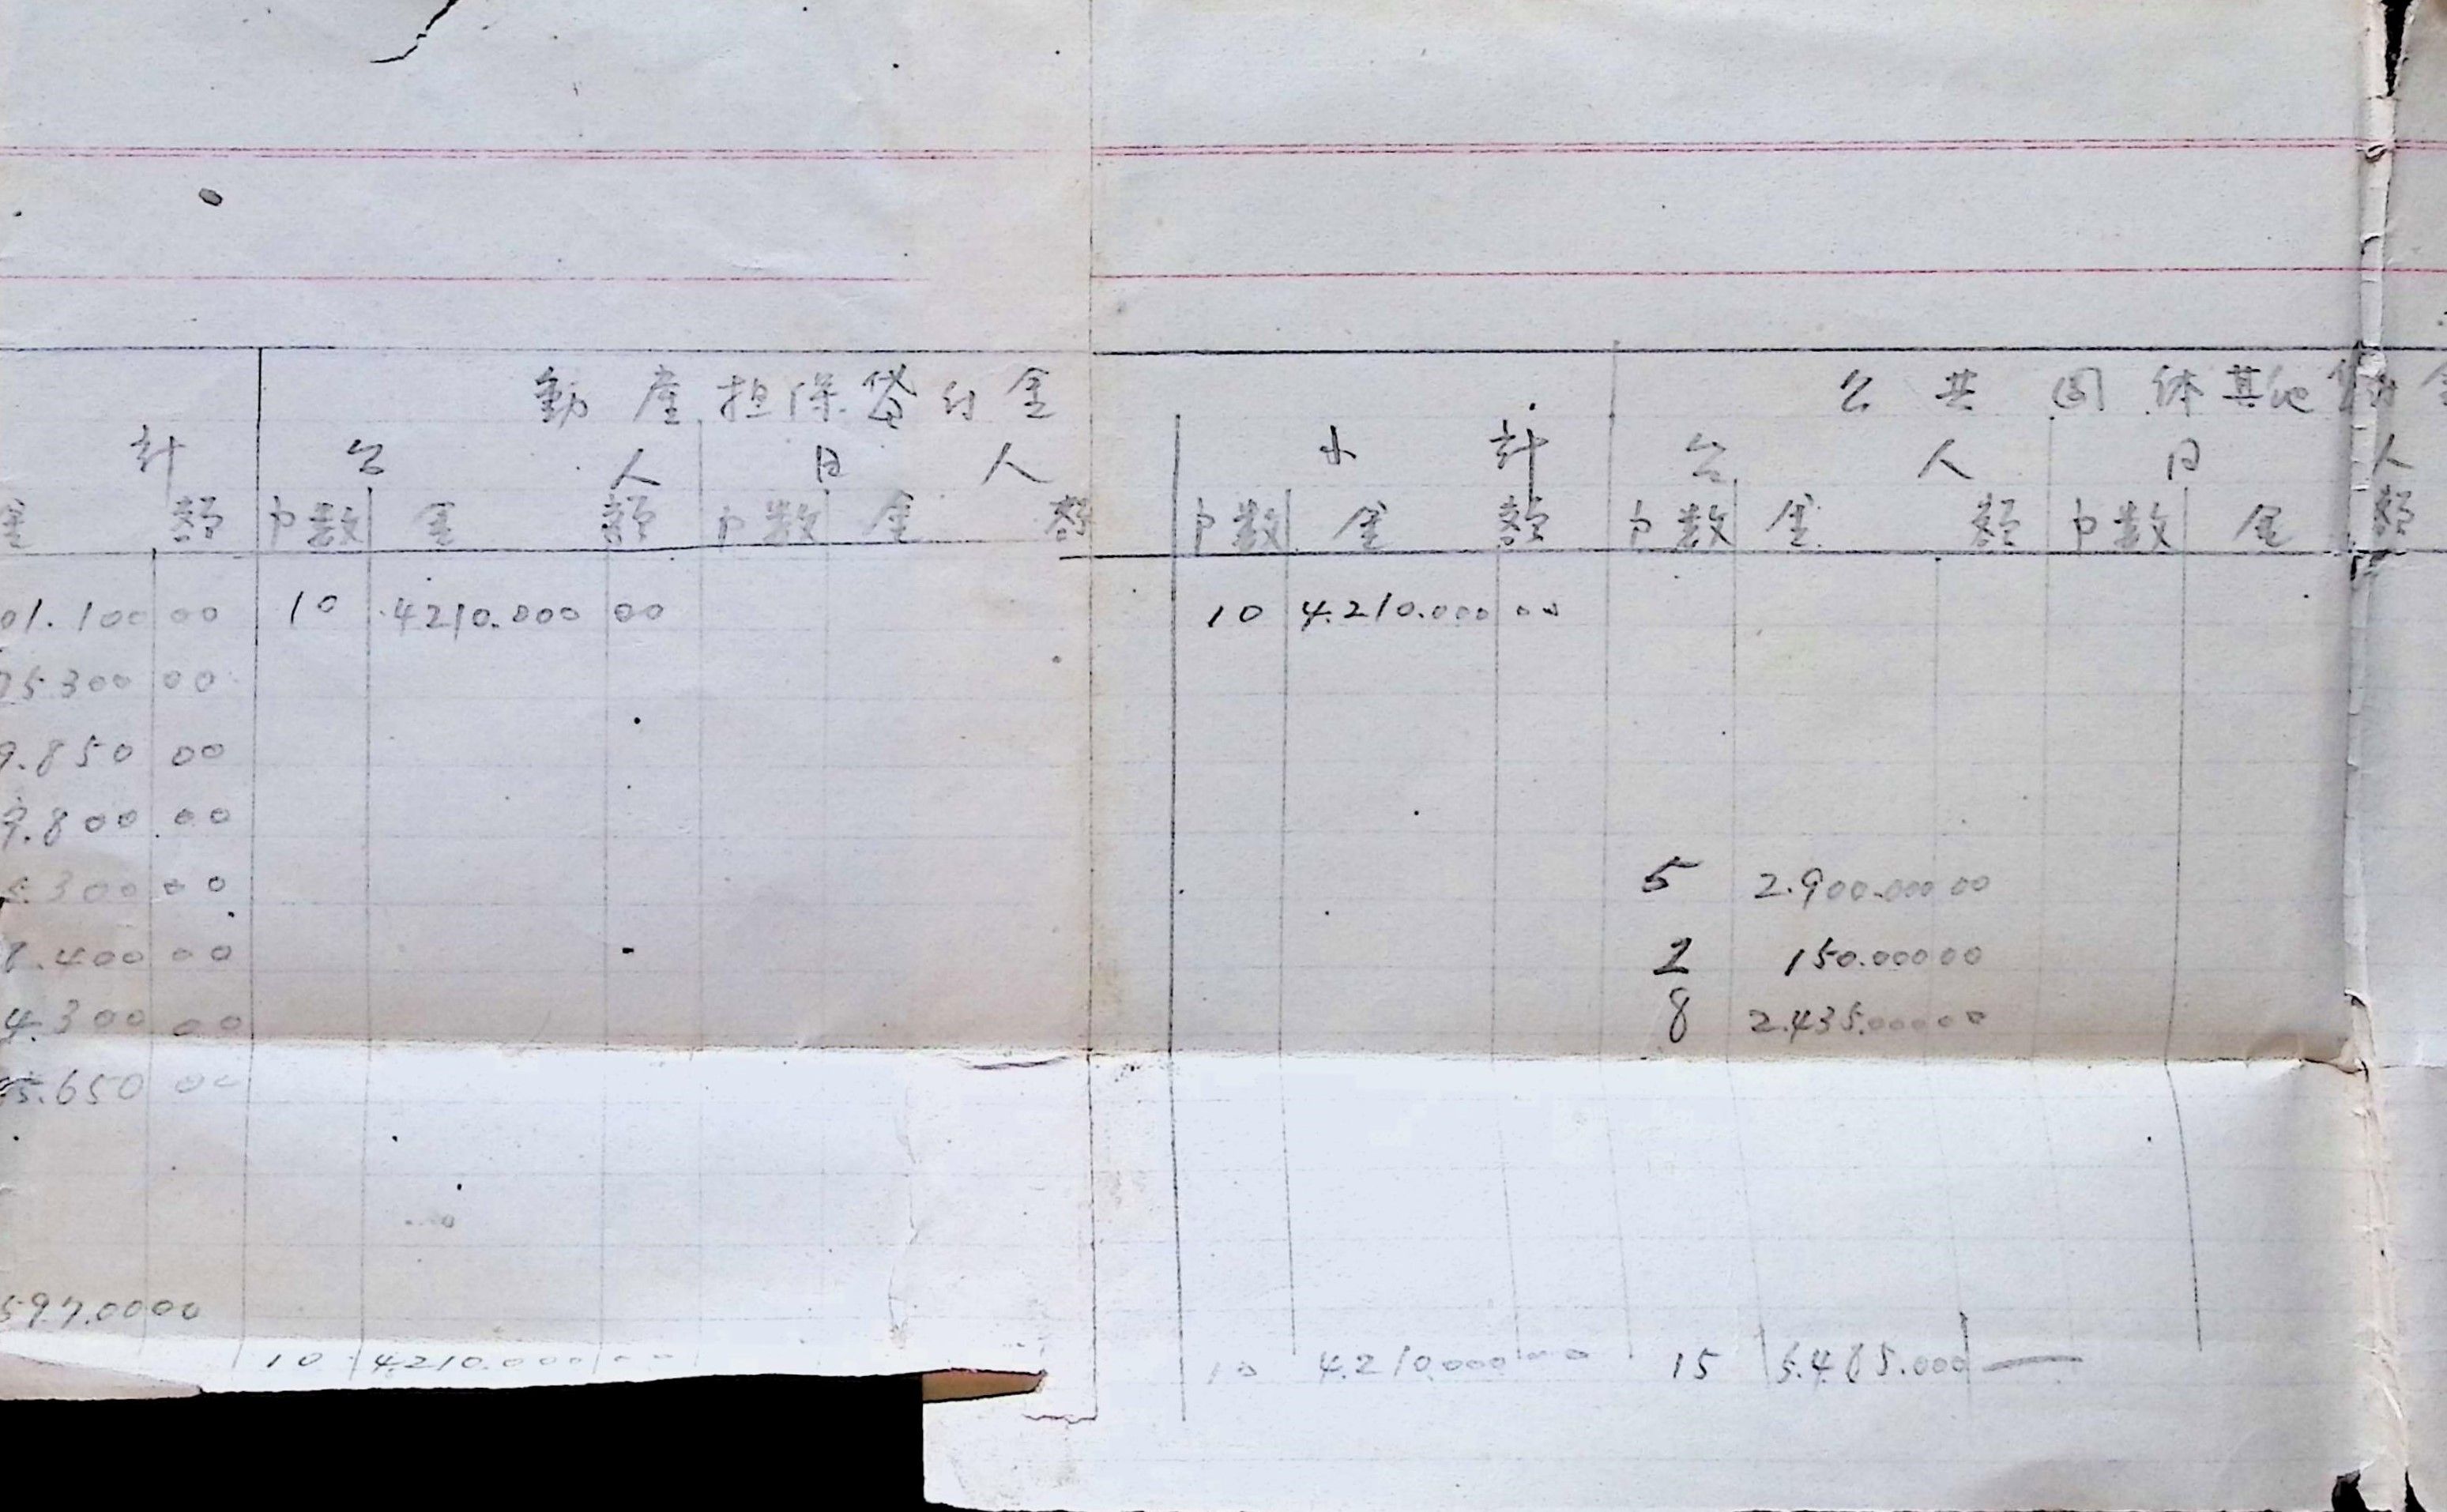 動産担保貸付金 公共団体其他貸付金
計 台 人 日 人 小計 台 人 日 人
金額 戸数 金額 戸数 金額 戸数 金額 戸数 金額 戸数 金額
01.100 00 10 4210.000 00 10 4.210.000 00
25300 00
9.850 00
9.800.00
5.300 00 5 2.900.000 00
8.400 00 2 150.000 00
4.300 00 8 2.435.000 00
5.650 00
597.0000
10 4.210.000 00 10 4.210.000 00 15 5.485.000 —